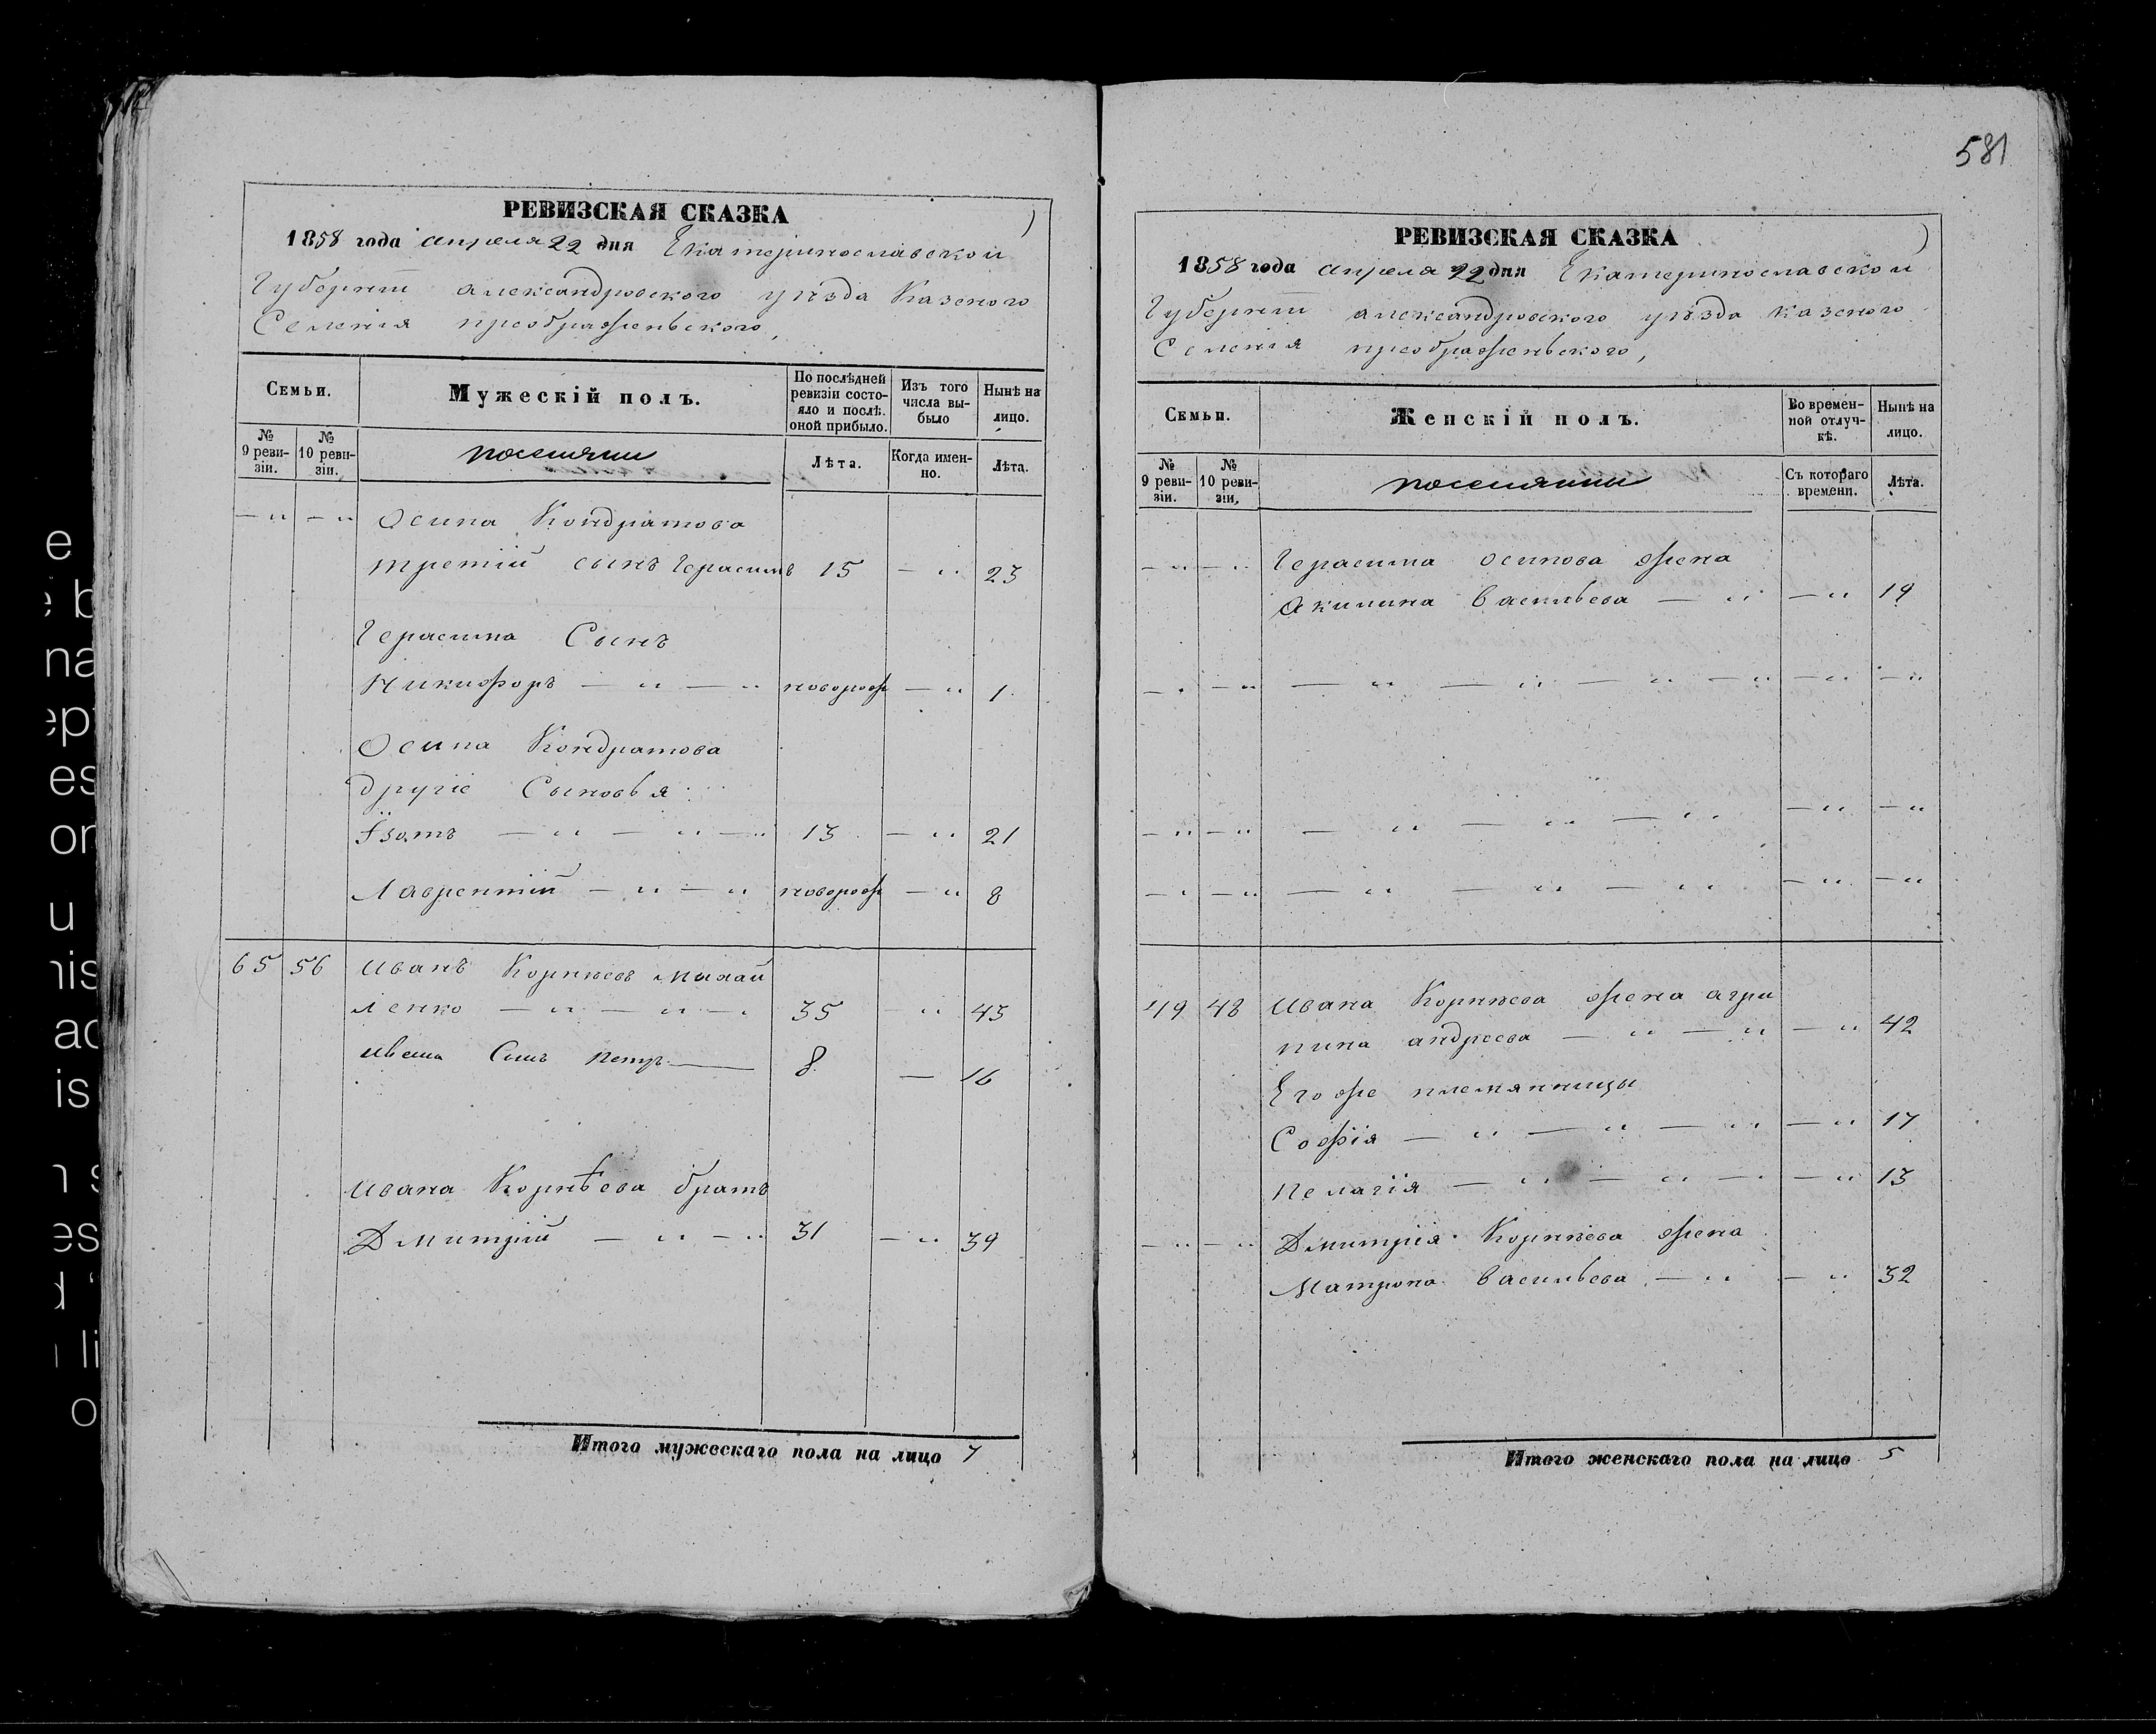 581
РЕВИЗСКАЯ СКАЗКА
1858 года апреля 22 дня Екатеринославской
Губернїи александровского уѣзда Казеного
Селенія преображеньского,
Семьи.
Мужескій полъ.
По послѣдней ревизіи состояло и послѣ. оной прибыло.
Изъ того числа выбыло
Нынѣ на лицо.
№ 9 ревизіи.
№ 10 ревизіи.
поселяни
Лѣта.
Когда именно.
Лѣта.
— " — " Осипа Кондратова
третій сынъ Герасимъ 15 — " 23
Герасима Сынъ
Никифоръ — " — "новорож — " 1
Осипа Кондратова
другіе Сыновья
Ѣзотъ — " — " — " 13 — " 21
Лаврентій — " — " новорож — " 8
65 56 Иванъ Корнѣевъ Михай
ленко — " — " — " 35 — " 43
Ивана Сынъ Петръ — 8 — 16
Ивана Корнѣева братъ
Дмитрій — " — " 31 — " 39
Итого мужескаго пола на лицо 7
РЕВИЗСКАЯ СКАЗКА
1858 года апреля 22 дня Екатеринославской
Губернїи александровского уѣзда казеного
Селенія преображеньского,
Семьи.
Женскій полъ.
Во временной отлучкѣ.
Нынѣ на лицо.
№ 9 ревизіи.
№ 10 ревизіи.
поселянии
Съ котораго времени.
Лѣта.
— " — " Герасима осипова жена
Акилина Васильева — " — " 19
— " — " — " — " — " — " — " — "
— " — " — " — " — " — " — "
— " — " — " — " — " — " — "
49 48 Ивана Корнѣева жена агри
пина андреева — " — " — " 42
Его же племянницы
Софія — " — " — " — " 17
Пелагія — " — " — " — " 13
— " — " Дмитрія Корнѣева жена
Матрона Васильева — " — " 32
Итого женскаго пола на лицо 5